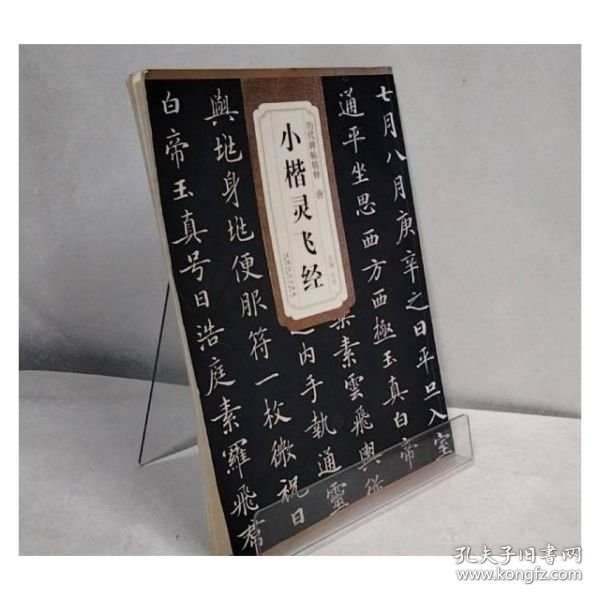 历代碑帖精粹 唐
小楷灵飞经
七月八月庚辛之日平旦入室
通平坐思西方西極玉真白帝
素雲飛輿從
之内手執通靈
與地身地便服符一枚微祝日
白帝玉真号日浩庭素羅飛君
孔夫子旧书网
www.kongfz.com